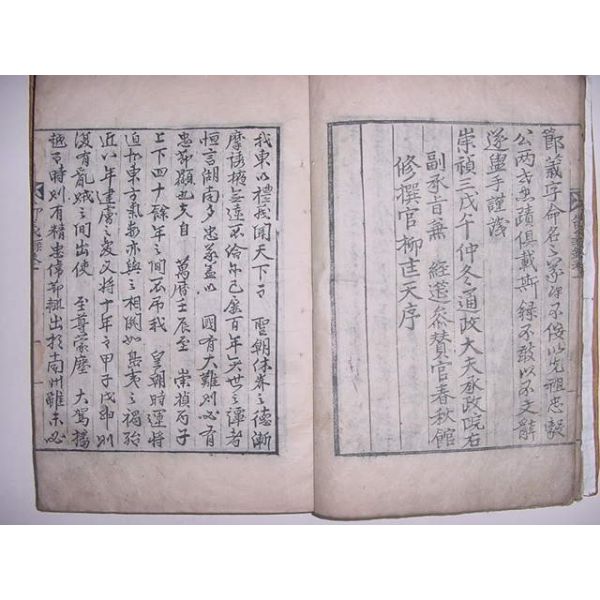 節義字命名之不佞以先祖忠毅
公两世忠蹟俱載斯錄不敢以不文辭
遂盥手謹識
崇禎三戊午仲冬通政大夫承政院右
副承旨兼 經筵叅賛官春秋館
修撰官柳匡天序
我東以禮義聞天下而 聖朝休養之德漸
摩誘掖無遠不已屢百年世之譚者
恒言湖南多忠義盖以 國有大難則必有
忠節顯也夫自 萬曆壬辰至 崇禎丙子
上下四十餘年之間不弔我 皇朝時運將
迫東方氣亦與之相關如島夷之禍殆
近八年建虜之變又將十年之甲子戊則
復有亂賊之間出使 至尊蒙塵 大駕播
越于時則有精忠偉節輒出於南州雖未必